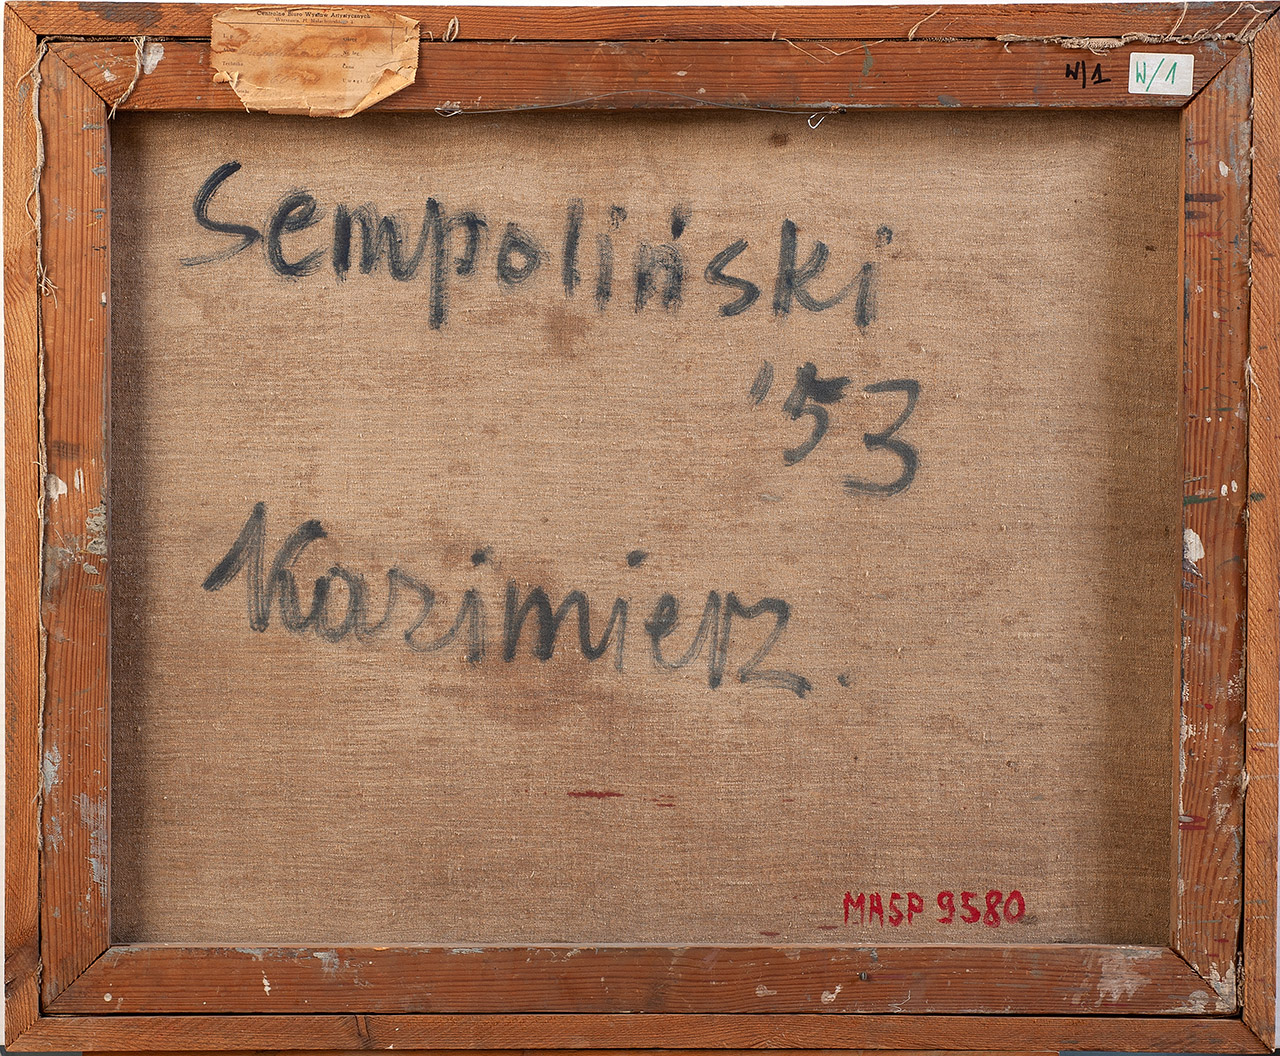 Centralne Biuro Wystaw Artystycznych
Warszawa, Pl. Małachowskiego 3
Technika
W/1
W/1
Sempoliński
'53
Kazimierz.
MASP 9580